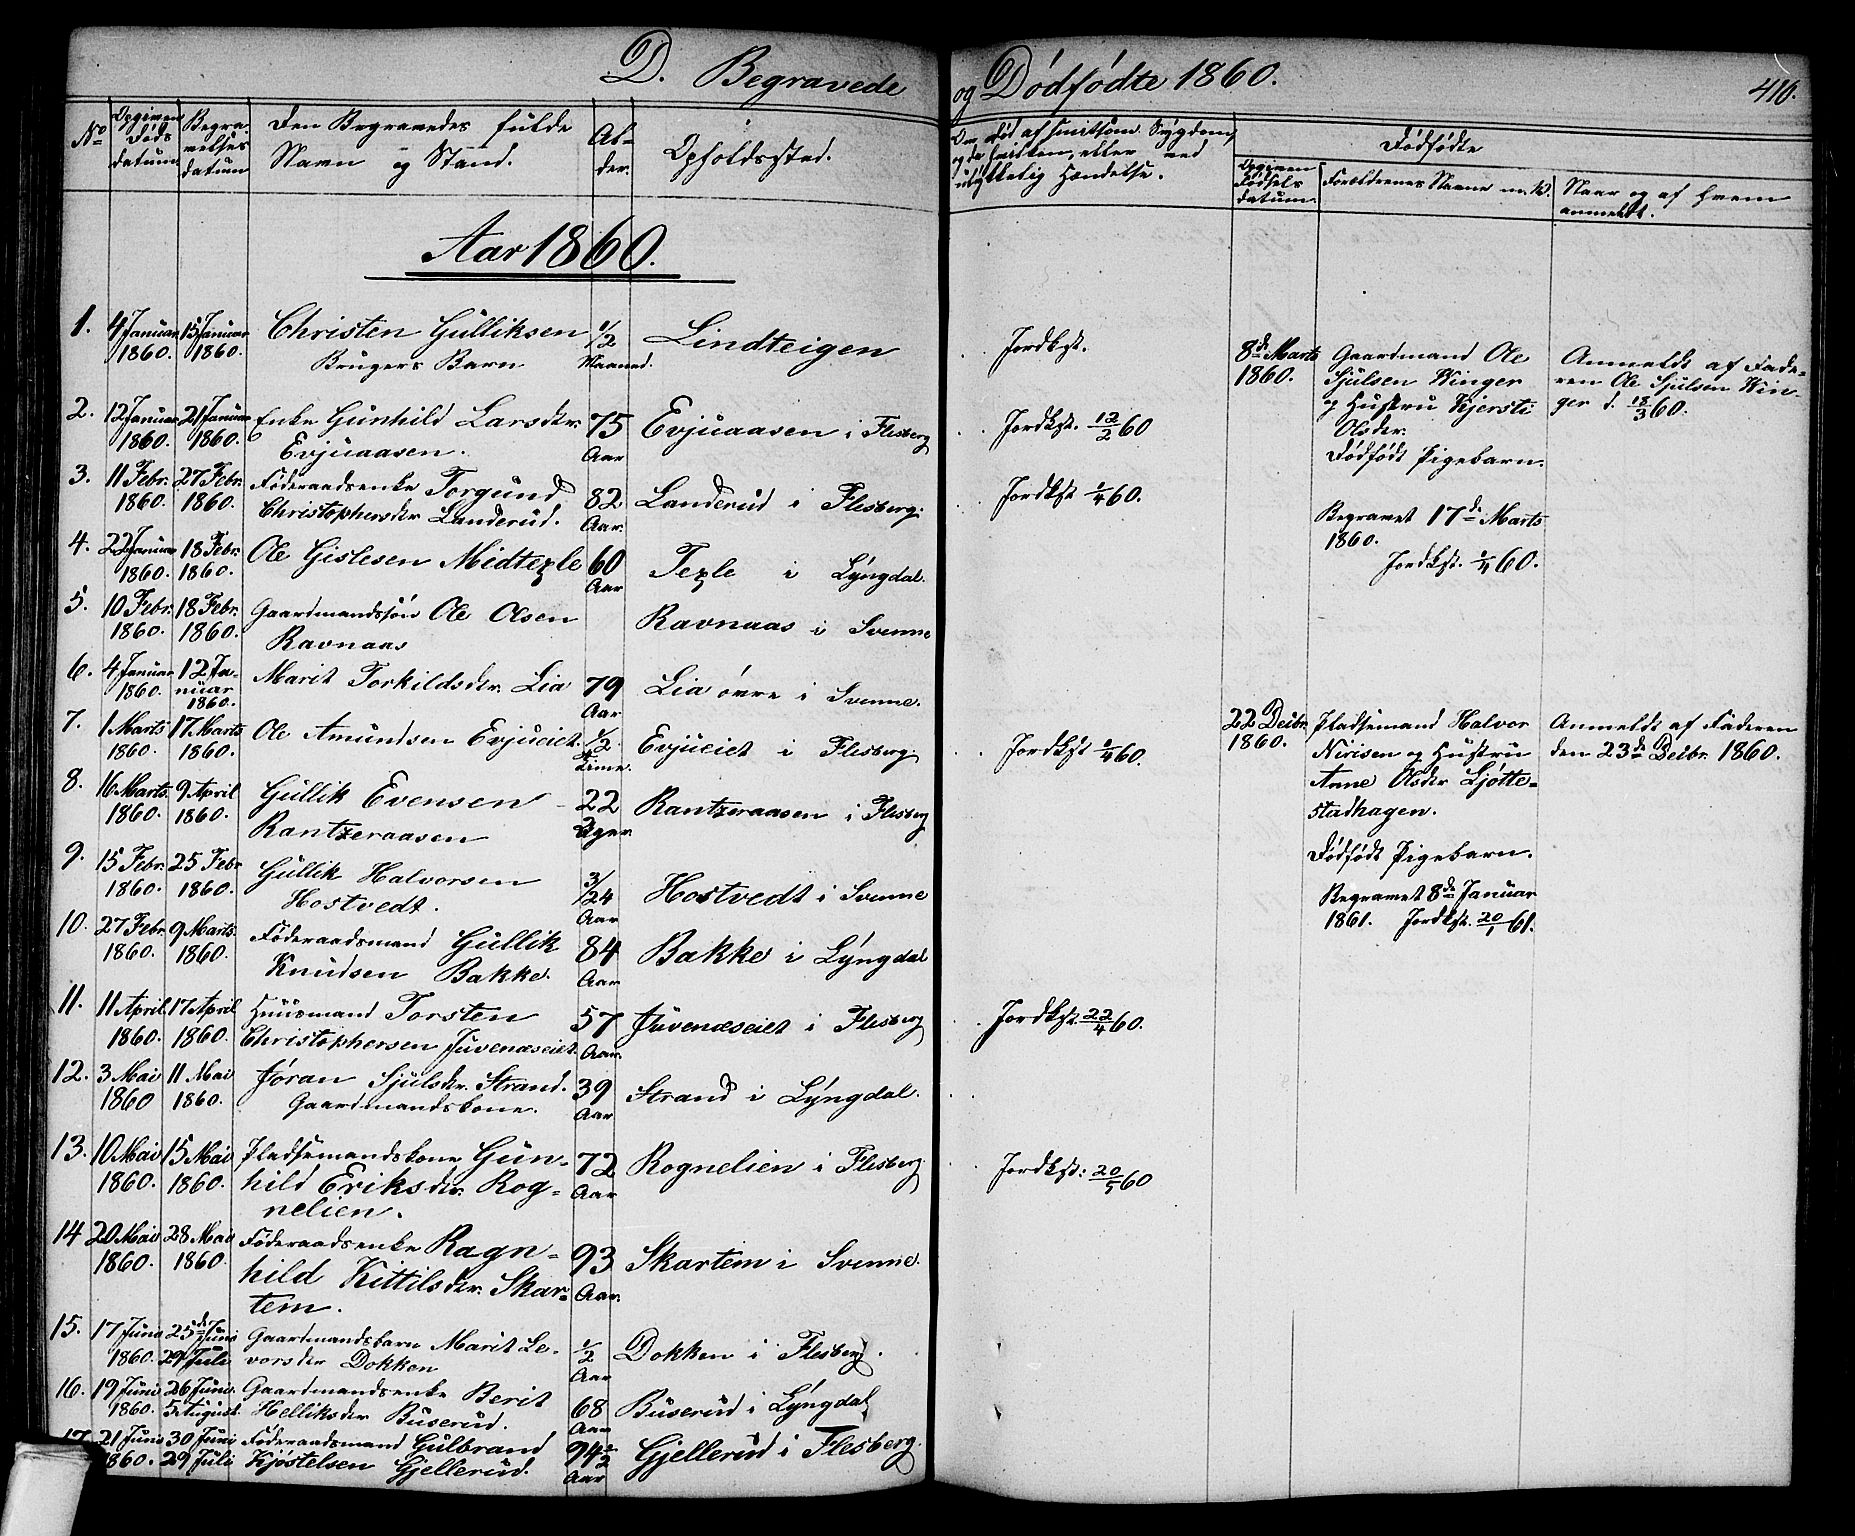 D. Begravede og Dødfødte 1860.
416.
No
Opgiven Døds datum
Begravelses datum
Den Begravedes fulde Navn og Stand.
Alder.
Opholdssted.
Om død af smitsom Sygdom, og da hvilken, eller ved ulykkelig Hændelse.
Dødfødte
Opgiven Fødsels datum.
Forældrenes Navne m. V.
Naar og af hvem anmeldt.
Aar 1860.
1. 4 Januar 1860. 15 Januar 1860. Christen Gulliksen Brugers Barn 1/2 Maaned. Lindteigen Jordkst.
2. 12 Januar 1860. 21 Januar 1860. Enke Gunhild Larsdtr. Evjuaasen. 75 Aar Evjuaasen i Flesberg Jordkst. 12/2 60
3. 11 Febr. 1860. 27 Febr. 1860. Föderaadsenke Torgund Christophersdtr Landerud. 82 Aar. Landerud i Flesberg. Jordkst 1/4 60.
4. 22 Januar 1860. 18 Febr. 1860. Ole Gislesen Midtexle 60 Aar Texle i Lyngdal.
5. 10 Febr. 1860. 18 Febr. 1860. Gaardmandssön Ole Olsen Ravnaas Ravnaas i Svenne
6. 4 Januar 1860. 12 Januar 1860. Marit Torkildsdtr. Lia 79 Aar Lia övre i Svenne.
7. 1 Marts 1860. 17 Marts 1860. Ole Amundsen Evjueiet. 1/2 Time. Evjueiet i Flesberg. Jordkst 1/4 60.
8. 16 Marts 1860. 9 April 1860. Gullik Evensen Rantzeraasen 22 Uger Rantzeraasen i Flesberg
9. 15 Febr. 1860. 25 Febr 1860. Gullik Halvorsen Hostvedt. 3/24 Aar Hostvedt i Svenne
10. 27 Febr. 1860. 9 Marts. 1860. Föderaadsmand Gullik Knudsen Bakke. 84 Aar Bakke i Lyngdal
11. 11 April 1860. 17 April 1860. Huusmand Torsten Christophersen Juvenæseiet 57 Aar. Juvenæseiet i Flesberg Jordkst. 22/4 60.
12. 3 Mai 1860 11 Mai 1860. Jöran Sjulsdtr. Strand. Gaardmandskone. 39 Aar Strand i Lyngdal.
13. 10 Mai 1860. 15 Mai 1860. Pladsemandskone Gunhild Eriksdtr. Rognelien. 72 Aar Rognelien i Flesberg. Jordkst: 20/5 60
14 20 Mai 1860. 28 Mai 1860. Föderaadsenke Ragnhild Kittilsdtr. Skartem. 93 Aar. Skartem i Svenne.
15. 17 Juni 1860. 25de Juni 29 Juli Gaardmandsbarn Marit Levorsdtr Dokken 1/2 Aar Dokken i Flesberg.
16. 19 Juni 1860. 26 Juni. 5 August. Gaardmandsenke Berit Helliksdtr Buserud. 68 Aar Buserud i Lyngdal
17. 21 Juni 1860. 30 Juni 29 Juli Föderaadsmand Gulbrand Kjöstelsen Gjellerud. 94 1/2 Aar Gjellerud i Flesberg.
8de Marts 1860.
Gaardmand Ole
Sjulsen Winger
og Hustru Kjersti
Olsdtr.
Dödfödt Pigebarn.
Begravet 17de Marts
1860.
Jordkst. 1/4 60.
Anmeldt af Fade-
ren Ole Sjulsen Win-
ger d. 18/3 60.
22 Decbr. 1860.
Pladsemand Halvor
Nirisen og Hustru
Anne Olsdtr Ljøtte-
stadhagen.
Dödfödt Pigebarn.
Begravet 8de Januar
1861. Jordkst. 20/1 61.
Anmeldt af Faderen
den 23de Decbr. 1860.